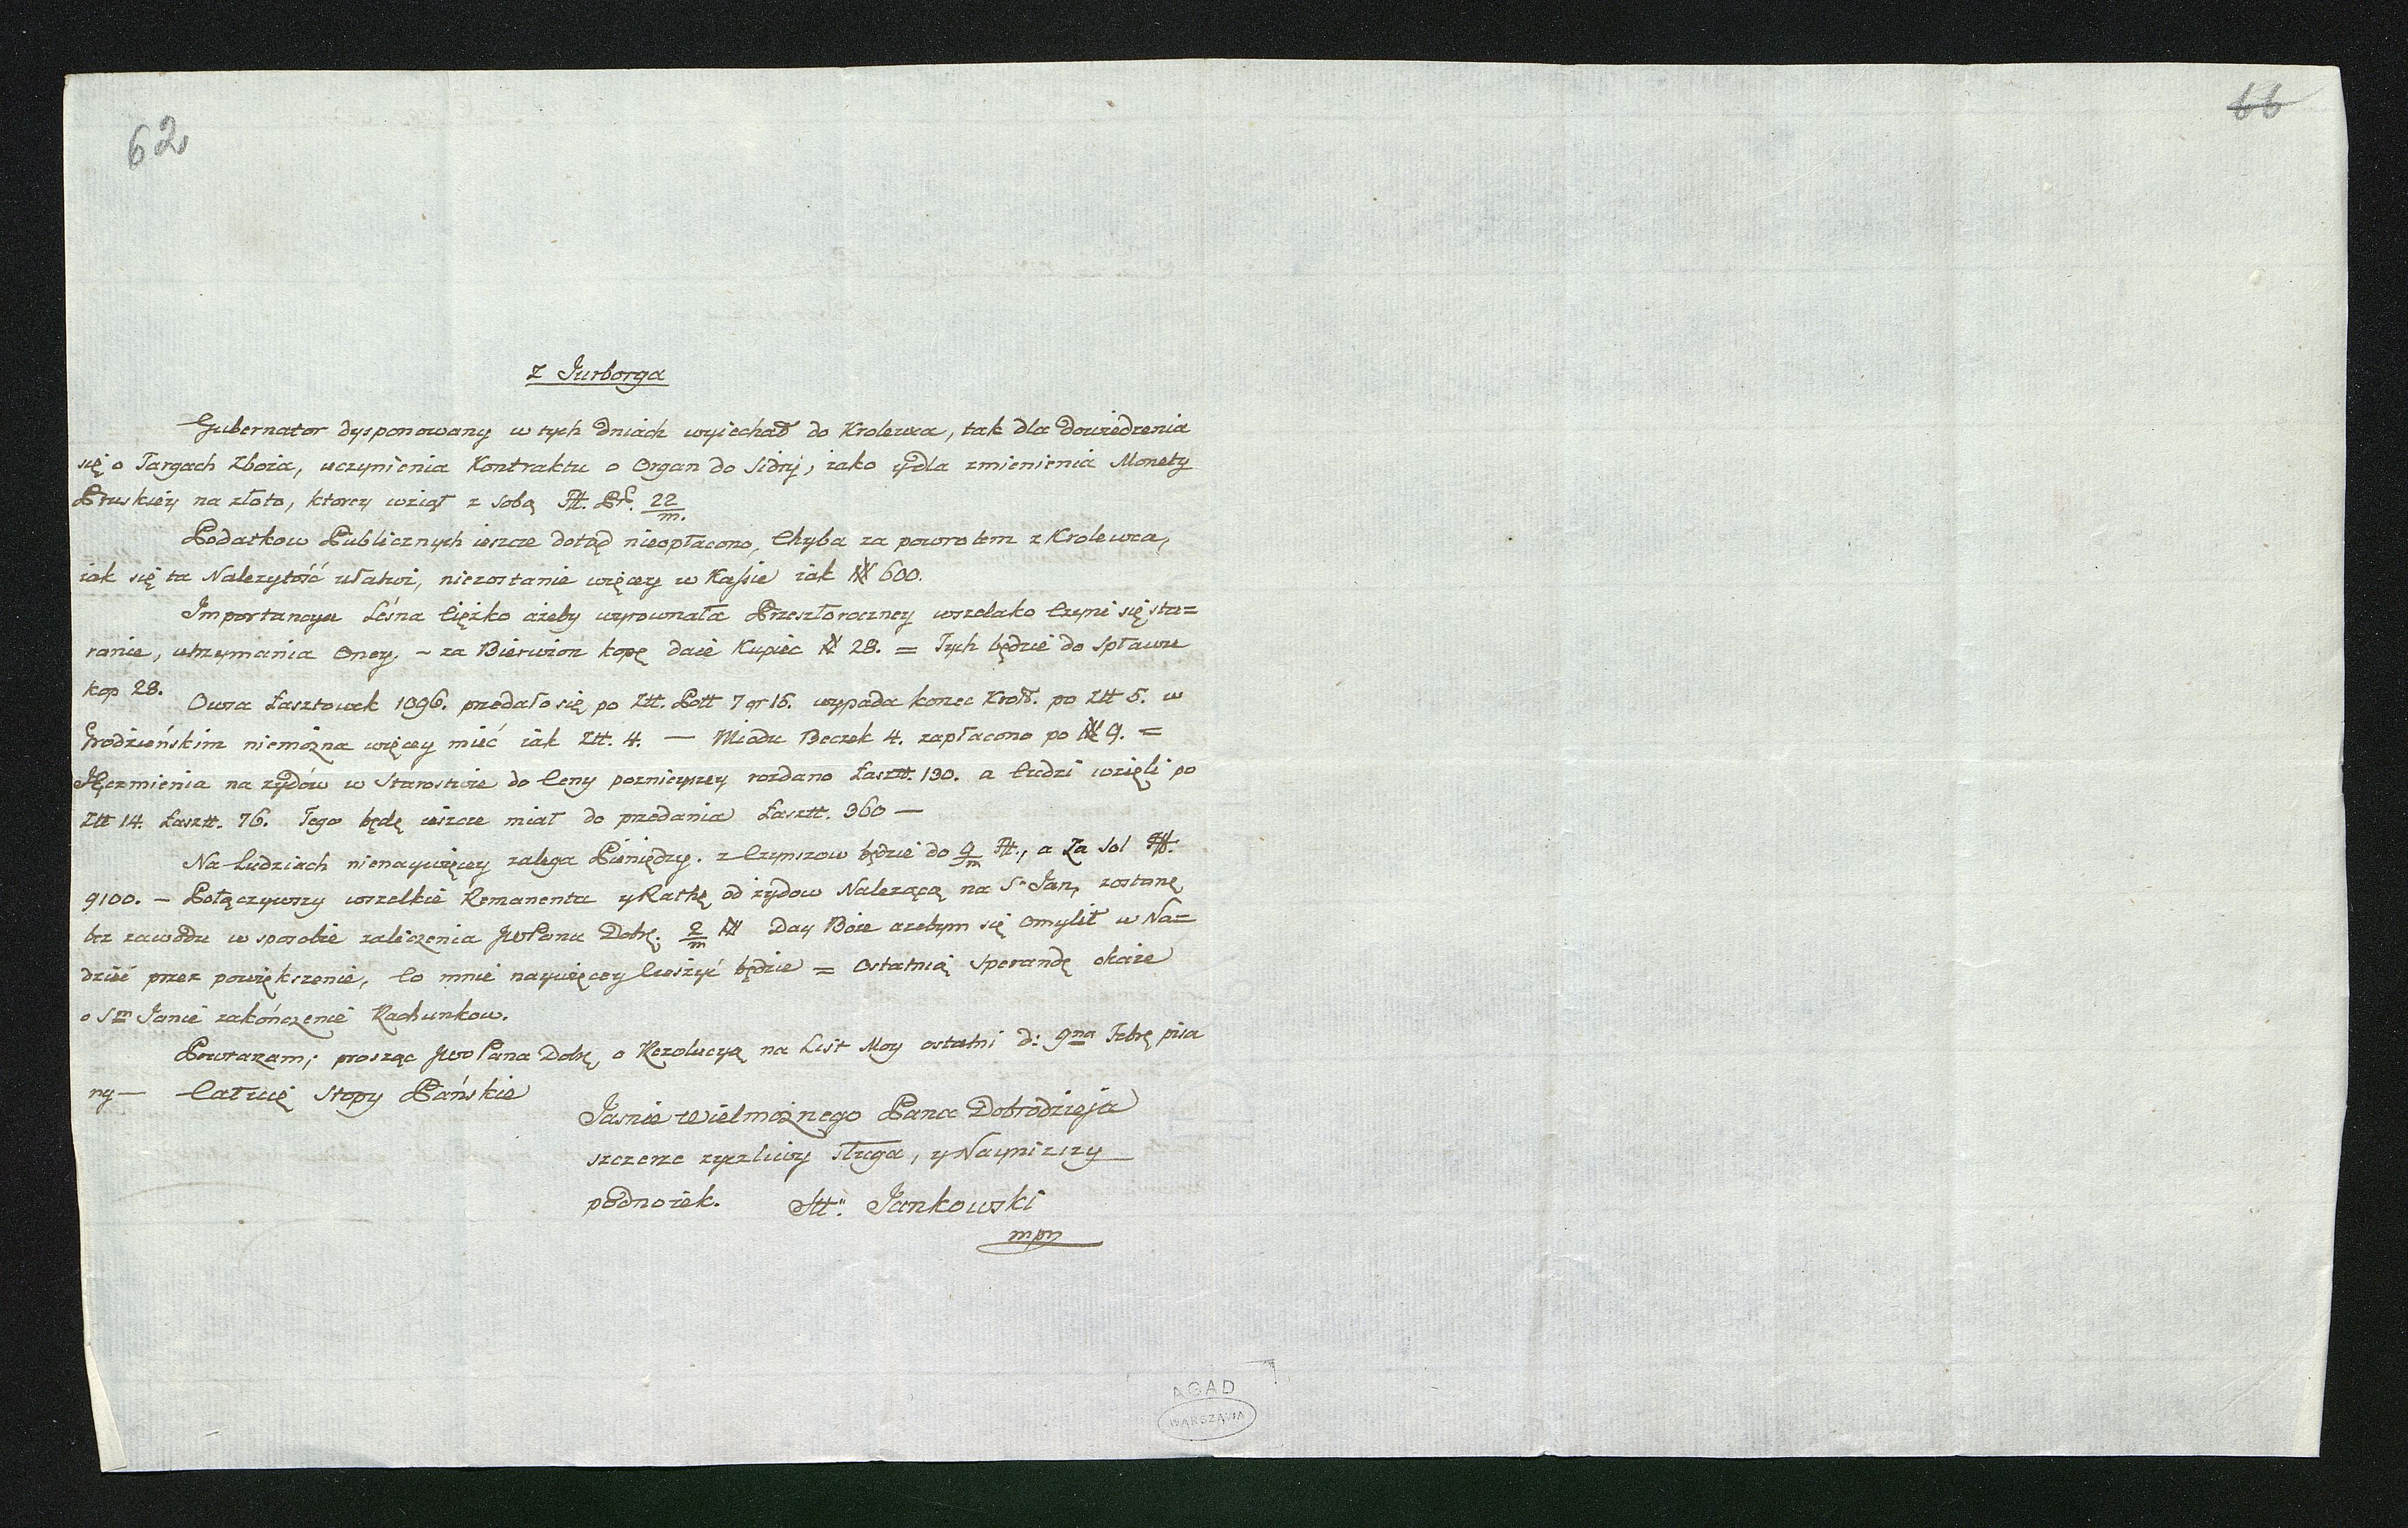 62
66
z Jurborga
Gubernator dysponowany w tych dniach wyiechał do Krolewca, tak dla dowiedzenia
się o Targach Zboża, uczynienia Kontraktu o Organ do Sidry, iako y dla zmienienia Monety
Pruskiey na złoto, ktorey wziął z sobą Ft. Pr. 22/m.
Podatkow Publicznych ieszcze dotąd nieopłacono, Chyba za powrotem z Krolewca,
iak się ta Należytość ułatwi, niezostanie więcey w Kassie iak # 600.
Importancya Leśna Ciężko ażeby wyrownała Przeszłoroczney wszelako Czyni się sta=
ranie, utrzymania Oney, – za Bierwion kopę daie Kupiec # 28. = Tych będzie do Spławu
kop 28.
Owsa Łasztowek 1096. przedało się po Ztt. Pott 7 gr 15. wypada korzec Kroll. po Ztt 5. w
Grodzieńskim niemożna więcey mieć iak Ztt. 4. — Miodu Beczek 4. zapłacono po # 9. =
Jęczmienia na żydów w Starostwie do Ceny poznieyszey rozdano Łasztt. 130. a Ludzi wzięli po
Ztt 14. Łasztt. 76. Tego będę ieszcze miał do przedania Łasztt. 360 —
Na Ludziach nienaywięcey zalega Pieniędzy. z Czynszow będzie do 9/m Ft., a Za Sol Ft.
9100. – Połączywszy wszelkie Remanenta y Rattę od żydow Należącą na S. Jan, zostanę
bez zawodu w sposobie zaliczenia JWPanu Dobr. 2/m # Day Boże ażebym się Omylił w Na=
dziei przez powiększenie, Co mnie naywięcey Cieszyć będzie = Ostatnią Sperandę okaże
o Sm Janie zakończenie Rachunkow.
Powtarzam; prosząc JWoPana Dobr. o Rezolucyą na List Moy ostatni d: 9na Febr. pisa
ny — Całuię Stopy Pańskie
Jasnie Wielmożnego Pana Dobrodzieja
szczerze życzliwy sługa, y Nayniższy
podnożek. Jtt: Jankowski
mpp
AGAD
WARSZAWA